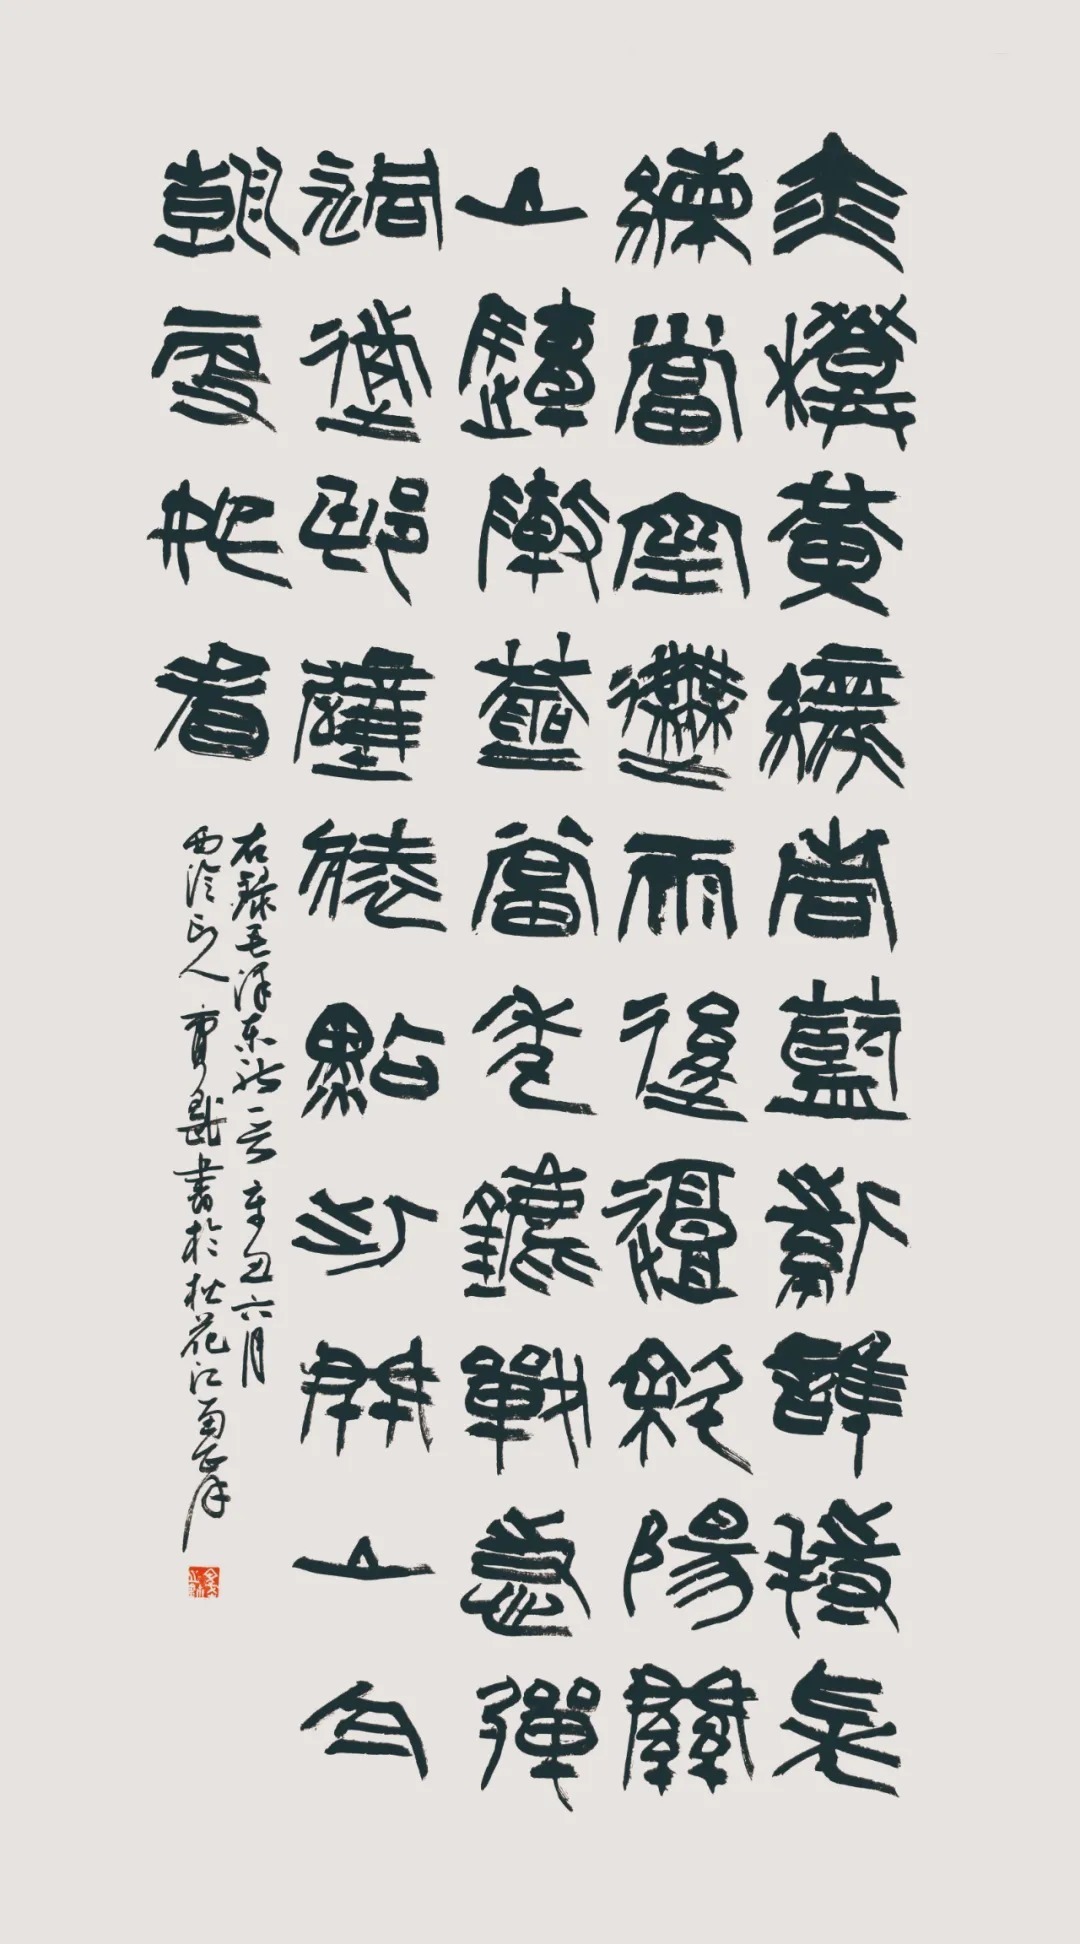 赤橙黃綠青藍紫誰持采
練當空舞雨後復斜陽關
山陣陣蒼當年鏖戰急彈
洞前邨壁裝點此關山今
朝更好看
右録毛泽东詞一首辛丑六月
西泠印人書於松花江南岸